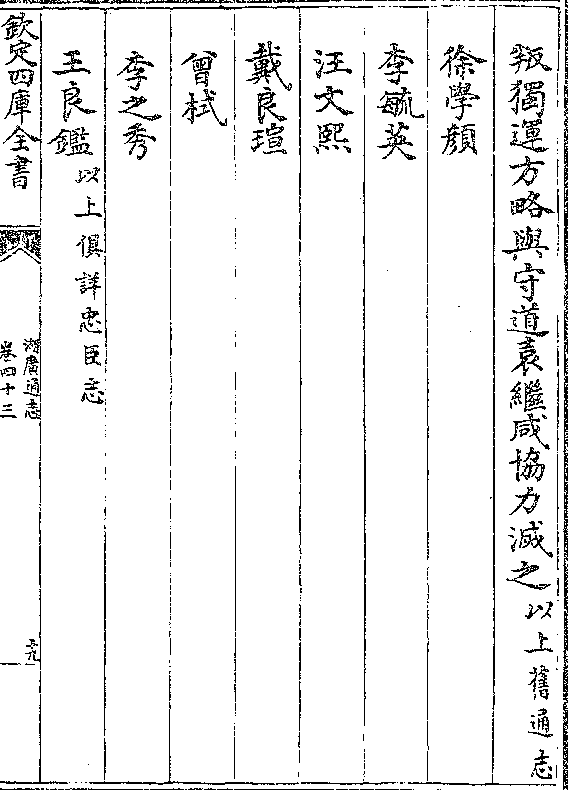 叛獨運方略與守道袁繼咸協力滅之以上舊通志
徐學顔
李毓英
汪文熙
戴良瑄
曾栻
李之秀
王良鑑以上俱詳忠臣志
欽定四庫全書
湖廣通志
卷四十三